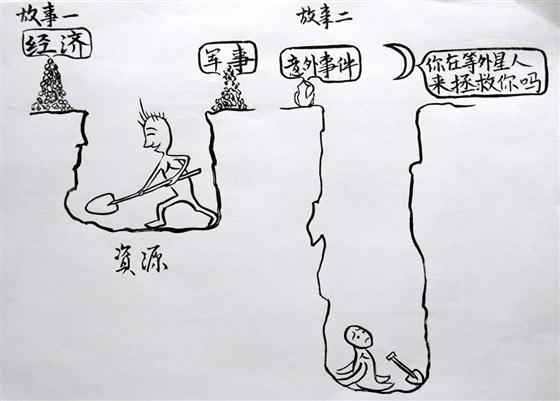 故事一
经济
军事
资源
故事二
意外事件
你在等外星人
来拯救你吗